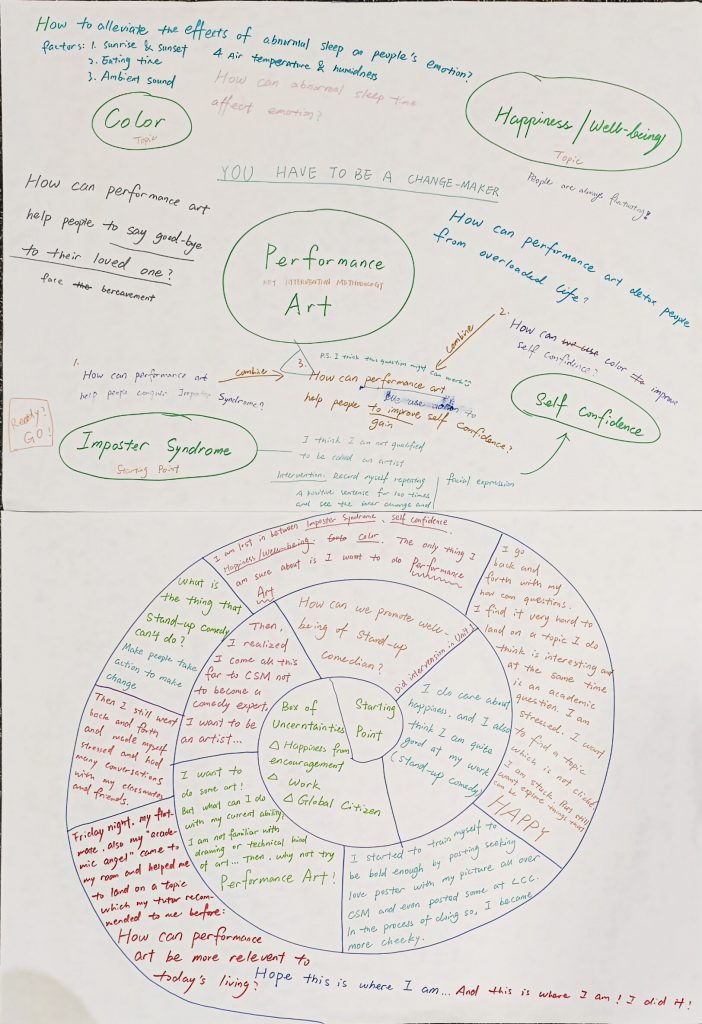 How to alleviate the effects of abnormal sleep on people's emotion?
factors: 1. sunrise & sunset
2. Eating time
3. Ambient sound
4. Air temperature & humidness
How can abnormal sleep time
affect emotion?
Color
Topic
Happiness/Well-being
Topic
People are always fluctuating!
YOU HAVE TO BE A CHANGE-MAKER
How can performance art
help people to say good-bye
to their loved one?
face the bereavement
Performance
KEY INTERVENTION METHODOLOGY
Art
How can performance art detox people
from overloaded life?
combine
2.
How can we use color to improve
self confidence?
Self confidence
1.
How can performance art
help people conquer Imposter Syndrome?
combine
3.
P.S. I think this question might can merge
How can performance art
we use action to
help people to improve self confidence?
gain
Ready?
GO!
Imposter Syndrome
Starting Point
I think I am not qualified
to be called an artist
Intervention: Record myself repeating
A positive sentence for 100 times
and see the inner change and
facial expression
I am lost in between Imposter Syndrome, self confidence,
Happiness/Wellbeing, color. The only thing I
am sure about is I want to do Performance
Art
I go
back and
forth with my
how can questions.
I find it very hard to
land on a topic I do
think is interesting and
at the same time
is an academic
question. I am
stressed. I want
to find a topic
which is not cliché
I am stuck.
want explore things that
can be
HAPPY
What is
the thing that
stand-up comedy
can't do?
Make people take
action to make
change
Then I still went
back and forth
and made myself
stressed and had
many conversations
with my classmates
and friends.
Friday night, my flat-
mate, also my "acade-
mic angel" came to
my room and helped me
to land on a topic
which my tutor recom-
mended to me before:
How can performance
art be more relevent to
today's living?
Hope this is where I am... And this is where I am! I did it!
Then,
I realized
I come all this
far to CSM not
to become a
comedy expert,
I want to be
an artist...
How can we promote well-
being of stand-up
comedian?
Did intervention in Unit 1
I do care about
happiness, and I also
think I am quite
good at my work
(stand-up comedy)
Box of
Uncerntainties
△ Happiness from
encouragement
△ Work
△ Global Citizen
Starting
Point
I want to
do some art!
But what can I do
with my current ability?
I am not familiar with
drawing or technical kind
of art... Then, why not try
Performance Art!
I started to train myself to
be bold enough by posting seeking
love poster with my picture all over
CSM and even posted some at LCC.
In the process of doing so, I become
more cheeky.